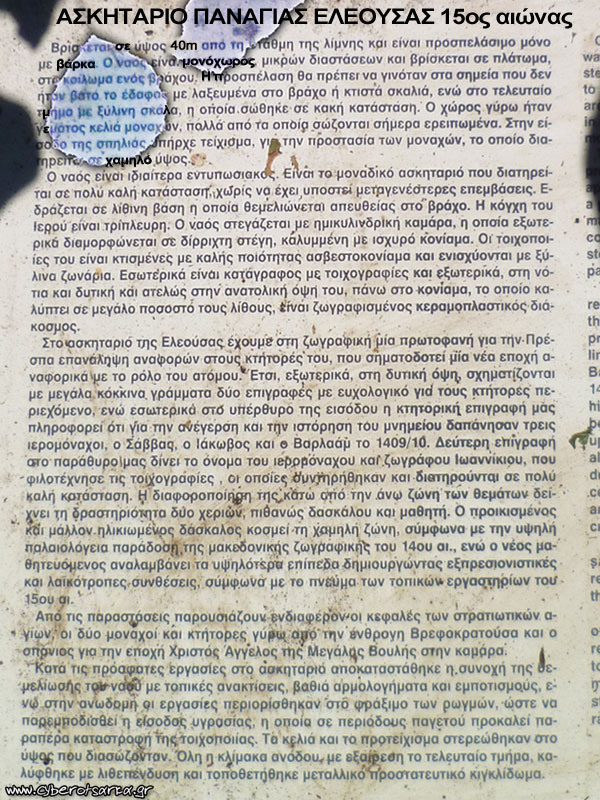 ΑΣΚΗΤΑΡΙΟ ΠΑΝΑΓΙΑΣ ΕΛΕΟΥΣΑΣ 15ος αιώνας
Βρίσκεται σε ύψος 40m από τη στάθμη της λίμνης και είναι προσπελάσιμο μόνο
με βάρκα. Ο ναός είναι μονόχωρος, μικρών διαστάσεων και βρίσκεται σε πλάτωμα,
στο κοίλωμα ενός βράχου. Η προσπέλαση θα πρέπει να γινόταν στα σημεία που δεν
ήταν βατό το έδαφος με λαξευμένα στο βράχο ή κτιστά σκαλιά, ενώ στο τελευταίο
τμήμα με ξύλινη σκάλα, η οποία σώθηκε σε κακή κατάσταση. Ο χώρος γύρω ήταν
γεμάτος κελιά μοναχών, πολλά από τα οποία σώζονται σήμερα ερειπωμένα. Στην εί-
σοδο της σπηλιάς υπήρχε τείχισμα, για την προστασία των μοναχών, το οποίο δια-
τηρείται σε χαμηλό ύψος.
Ο ναός είναι ιδιαίτερα εντυπωσιακός. Είναι το μοναδικό ασκηταριό που διατηρεί-
ται σε πολύ καλή κατάσταση, χωρίς να έχει υποστεί μεταγενέστερες επεμβάσεις. Ε-
δράζεται σε λίθινη βάση η οποία θεμελιώνεται απευθείας στο βράχο. Η κόγχη του
Ιερού είναι τρίπλευρη. Ο ναός στεγάζεται με ημικυλινδρική καμάρα, η οποία εξωτε-
ρικά διαμορφώνεται σε δίρριχτη στέγη, καλυμμένη με ισχυρό κονίαμα. Οι τοιχοποι-
ίες του είναι κτισμένες με καλής ποιότητας ασβεστοκονίαμα και ενισχύονται με ξύ-
λινα ζωνάρια. Εσωτερικά είναι κατάγραφος με τοιχογραφίες και εξωτερικά, στη νό-
τια και δυτική και ατελώς στην ανατολική όψη του, πάνω στο κονίαμα, το οποίο κα-
λύπτει σε μεγάλο ποσοστό τους λίθους, είναι ζωγραφισμένος κεραμοπλαστικός διά-
κοσμος.
Στο ασκηταριό της Ελεούσας έχουμε στη ζωγραφική μία πρωτοφανή για την Πρέ-
σπα επανάληψη αναφορών στους κτήτορές του, που σηματοδοτεί μία νέα εποχή α-
ναφορικά με το ρόλο του ατόμου. Έτσι, εξωτερικά, στη δυτική όψη, σχηματίζονται
με μεγάλα κόκκινα γράμματα δύο επιγραφές με ευχολογικό για τους κτήτορες πε-
ριεχόμενο, ενώ εσωτερικά στο υπέρθυρο της εισόδου η κτητορική επιγραφή μας
πληροφορεί ότι για την ανέγερση και την ιστόρηση του μνημείου δαπάνησαν τρεις
ιερομόναχοι, ο Σάββας, ο Ιάκωβος και ο Βαρλαάμ το 1409/10. Δεύτερη επιγραφή
στο παράθυρο μας δίνει το όνομα του ιερομόναχου και ζωγράφου Ιωαννίκιου, που
φιλοτέχνησε τις τοιχογραφίες , οι οποίες συντηρήθηκαν και διατηρούνται σε πολύ
καλή κατάσταση. Η διαφοροποίηση της κάτω από την άνω ζώνη των θεμάτων δεί-
χνει τη δραστηριότητα δύο χεριών, πιθανώς δασκάλου και μαθητή. Ο προικισμένος
και μάλλον ηλικιωμένος δάσκαλος κοσμεί τη χαμηλή ζώνη, σύμφωνα με την υψηλή
παλαιολόγεια παράδοση της μακεδονικής ζωγραφικής του 14ου αι., ενώ ο νέος μα-
θητευόμενος αναλαμβάνει τα υψηλότερα επίπεδα δημιουργώντας εξπρεσιονιστικές
και λαϊκότροπες συνθέσεις, σύμφωνα με το πνεύμα των τοπικών εργαστηρίων του
15ου αι.
Από τις παραστάσεις παρουσιάζουν ενδιαφέρον οι κεφαλές των στρατιωτικών α-
γίων, οι δύο μοναχοί και κτήτορες γύρω από την ένθρονη Βρεφοκρατούσα και ο
σπάνιος για την εποχή Χριστός Άγγελος της Μεγάλης Βουλής στην καμάρα.
Κατά τις πρόσφατες εργασίες στο ασκηταριό αποκαταστάθηκε η συνοχή της θε-
μελίωσης του ναού με τοπικές ανακτίσεις, βαθιά αρμολογήματα και εμποτισμούς, ε-
νώ στην ανωδομή οι εργασίες περιορίσθηκαν στο φράξιμο των ρωγμών, ώστε να
παρεμποδισθεί η είσοδος υγρασίας, η οποία σε περιόδους παγετού προκαλεί πα-
ραπέρα καταστροφή της τοιχοποιίας. Τα κελιά και το προτείχισμα στερεώθηκαν στο
ύψος που διασώζονταν. Όλη η κλίμακα ανόδου, με εξαίρεση το τελευταίο τμήμα, κα-
λύφθηκε με λιθεπένδυση και τοποθετήθηκε μεταλλικό προστατευτικό κιγκλίδωμα.
www.cyberotsarka.gr